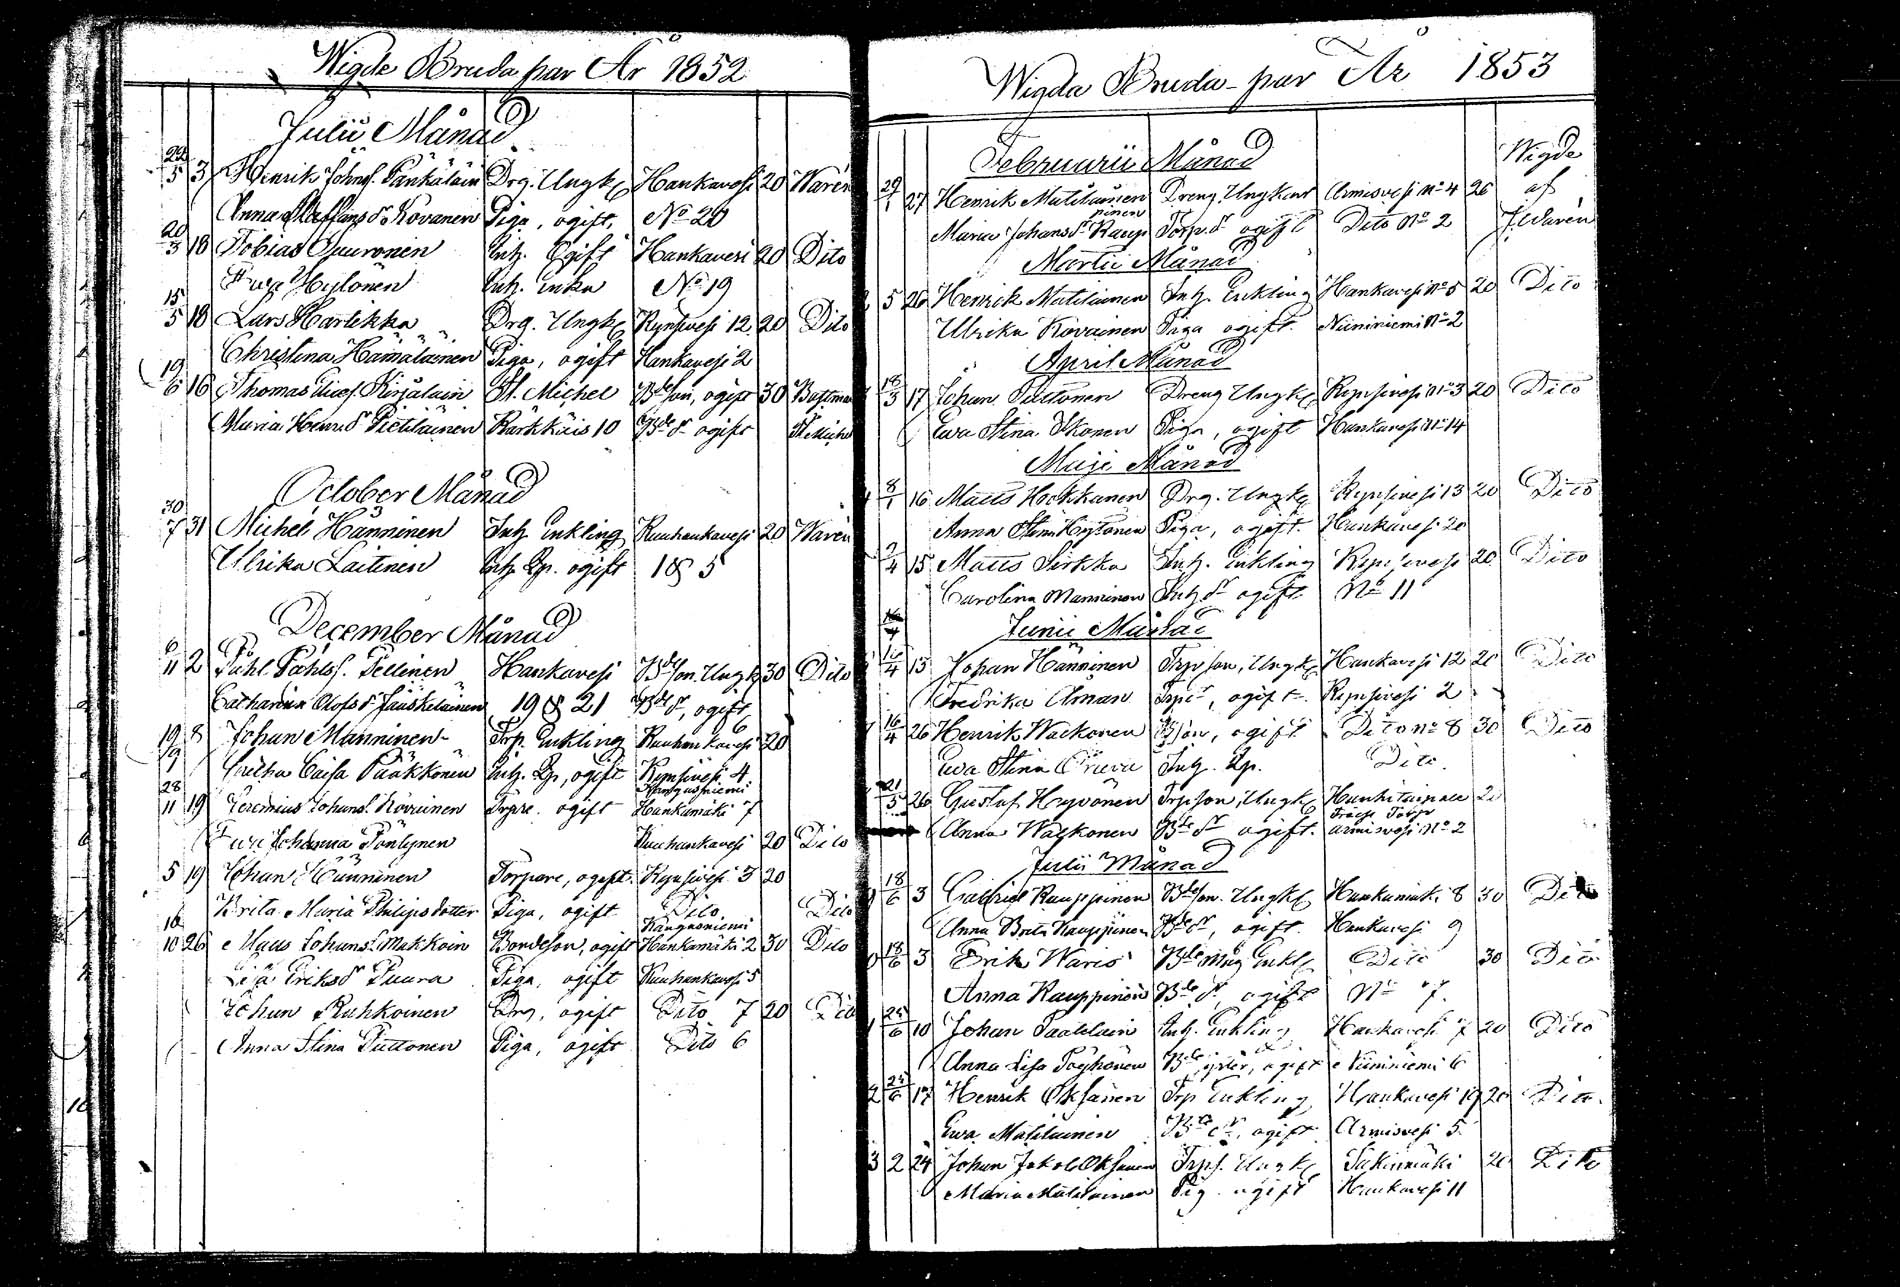 Wigde Bruda par År 1852
Julii Månad
22/5 3 Henrik Johns. Pänkäläin Drg. Ungk. Hankavesi 20 Warén
Anna Staffans dr Kovanen Piga, ogift, No 20
20/3 18 Tobias Spuuronen Inh. Ogift Hankavesi 20 Dito
Ewa Hytönen Inh. Enka No 19
15/5 18 Lars Hartikka Drg. Ungk. Rynsivesi 12 20 Dito
Christina Hämäläinen Piga, ogift Hankavesi 2
19/6 16 Thomas St. Michel Bdeson, ogift 30
Maria Henr. dr Pietiläinen Kärkkäis 10 Bde dr ogift St Michel
October Månad
30/7 31 Michel Hänninen Inh. Enkling Rauhankavesi 20 Warén
Ulrika Laitinen Inh. Qp. ogift 1 & 5
December Månad
6/11 2 Påhl Påhlss. Pellinen Hankavesi Bdeson. Ungk. 30 Dito
Catharina Olofs dr Jääskeläinen 19 & 21 Bde dr, ogift
19/9 8 Johan Manninen Trp. Enkling Rauhankavesi 6 20
Caisa Pääkkönen Inh. Qp, ogift Rynsivesi 4
28/11 19 Jeremias Johans. Kovainen Trpre. ogift Kangasniemi Hankamäki 7
Ewa Johanna Pöntynen Rauhankavesi 20 Dito
5 19 Johan Hänninen Torpare, ogift Rynsivesi 3 20
Brita Maria Philips dotter Piga, ogift Dito Dito
16/10 26 Mats Johans. Makkoin Bondeson, ogift Kangasniemi Hankamäki 2 30 Dito
Lisa Eriks dr Puura Piga, ogift Rauhankavesi 5
Johan Ruhkoinen Drg, ogift Dito 7 20 Dito
Anna Stina Puttonen Piga, ogift Dito 6
Wigda Bruda-par År 1853
Februarii Månad Wigde
29/1 27 Henrik Matilainen Dreng Ungkarl Armisvesi No 4 20 af
Maria Johans dr Rauppinen Torp. dr ogift Dito No 2 J. Warén
Martii Månad
5 26 Henrik Matilainen Inh. Enkling Hankavesi No 5 20 Dito
Ulrika Kovainen Piga ogift Niininiemi No 2
April Månad
18/3 17 Johan Puttonen Dreng Ungk. Rynsivesi No 3 20 Dito
Ewa Stina Ikonen Piga, ogift Hankavesi No 14
Maji Månad
8/1 16 Matts Hokkanen Drg. Ungk. Rynsivesi 13 20 Dito
Anna Stina Hytönen Piga, ogift Hankavesi 20
2/4 15 Matts Sirkka Inh. Enkling Rynsivesi 20 Dito
Carolina Manninen Inh. dr ogift No 11
Junii Månad
16/4 13 Johan Hänninen Trpson, Ungk. Hankavesi 12 20 Dito
Fredrika Åman Trp dr, ogift Rynsivesi 2
16/4 26 Henrik Wackonen Bson, ogift Dito No 8 30 Dito
Ewa Stina Inh. Qp. Dito.
21/5 26 Gustaf Hyvönen Trpson, Ungk. Hanhitaipale 20
Anna Waykonen Bde dr ogift. Armisvesi No 2
Julii Månad
18/6 3 Gabriel Rauppinen Bdeson. Ungk. Hankamäki 8 30 Dito
Anna Brita Rauppinen Bde dr, ogift Hankavesi 9
18/6 3 Erik Waris Bde måg Enkl. Dito 30 Dito
Anna Rauppinen Bde dr, ogift No 7.
25/6 10 Johan Paalain Inh. Enkling Hankavesi 7 20 Dito
Anna Lisa Pöyhönen Bde syster, ogift Niininiemi 6
2 25/6 17 Henrik Oksanen Trp Enkling Hankavesi 19 20 Dito
Ewa Matilainen Bde dr, ogift Armisvesi 5
3 2 24 Johan Jakob Oksanen Trps. Ungk. Sakinmäki 20 Dito
Maria Matilainen Pig. ogift Hankavesi 11